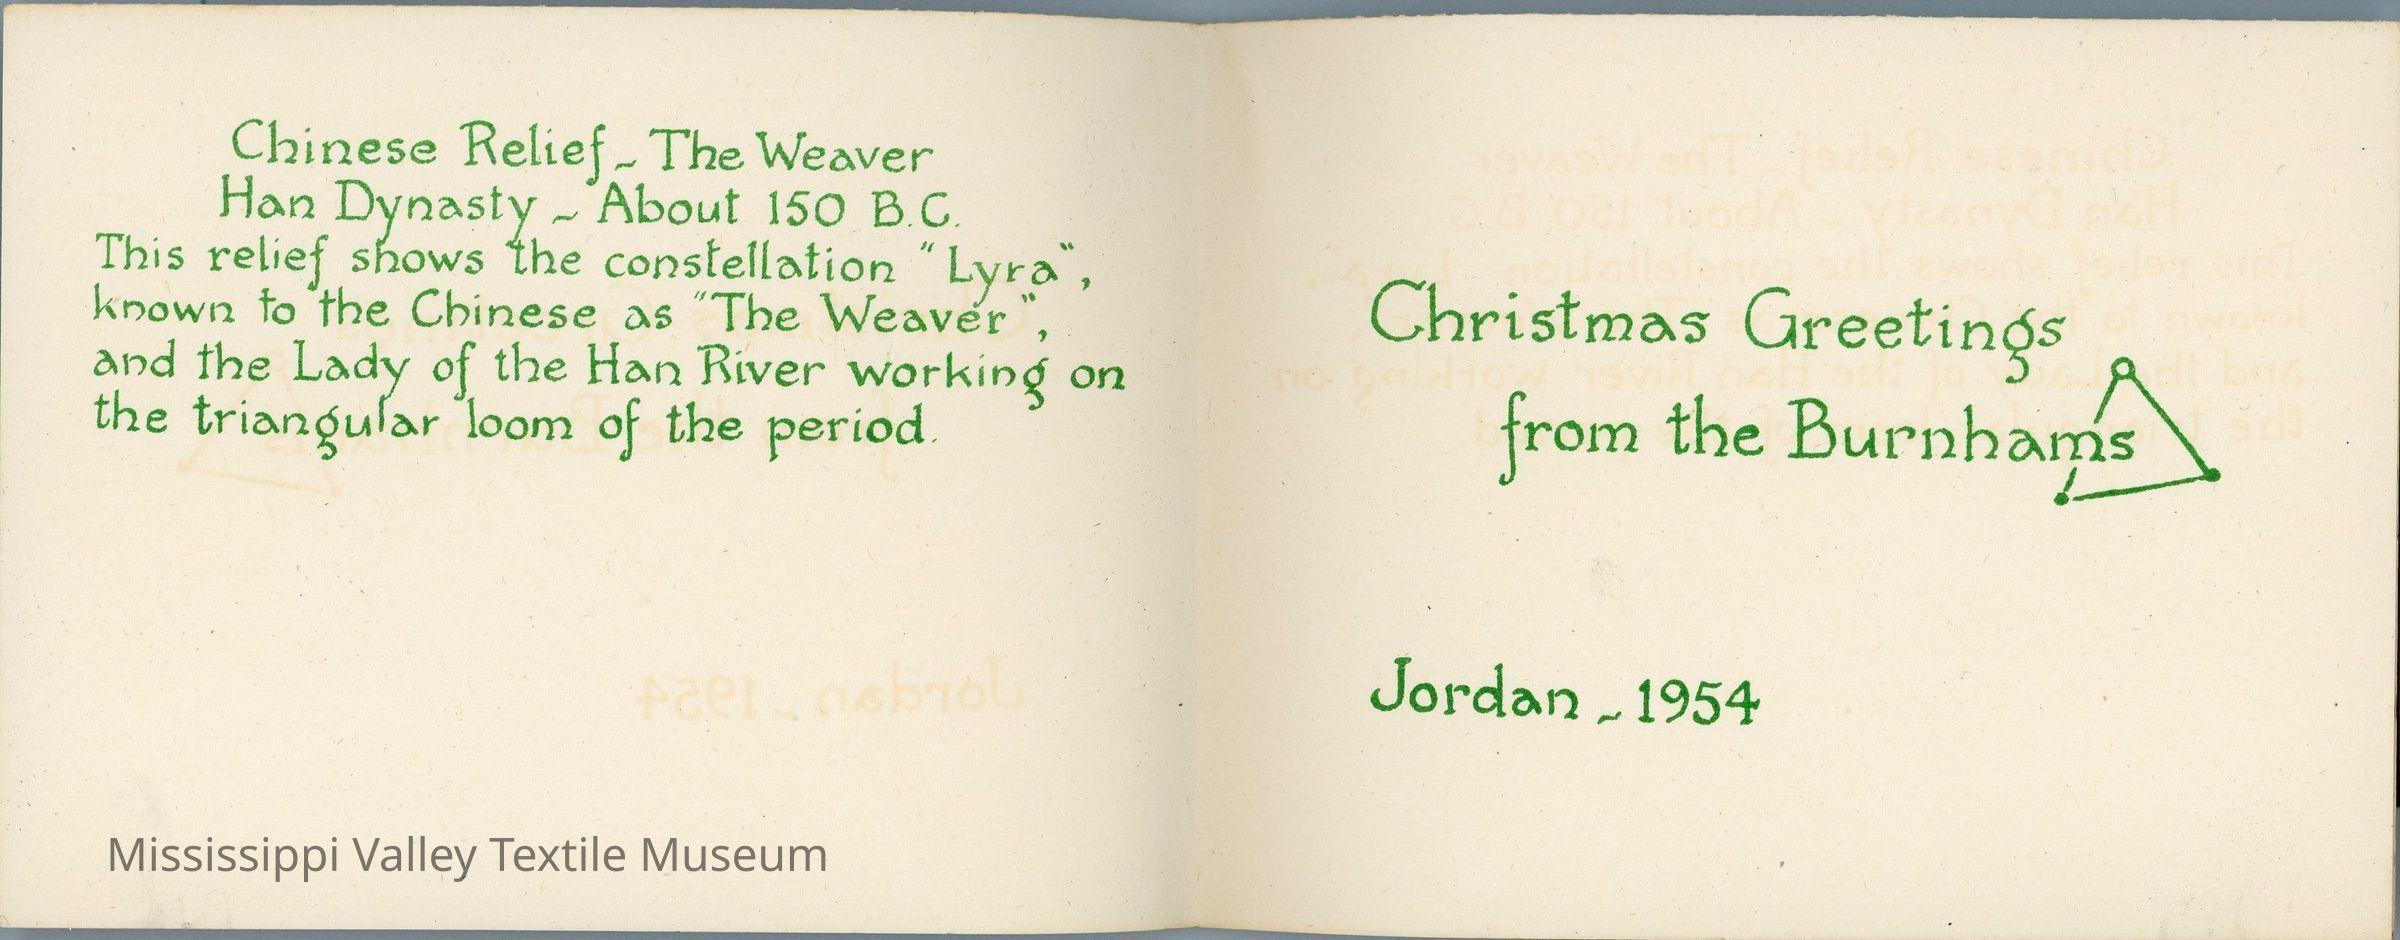 Chinese Relief ~ The Weaver
Han Dynasty ~ About 150 B.C.
This relief shows the constellation "Lyra",
known to the Chinese as "The Weaver",
and the Lady of the Han River working on
the triangular loom of the period.
Mississippi Valley Textile Museum
Christmas Greetings
from the Burnhams
Jordan ~ 1954